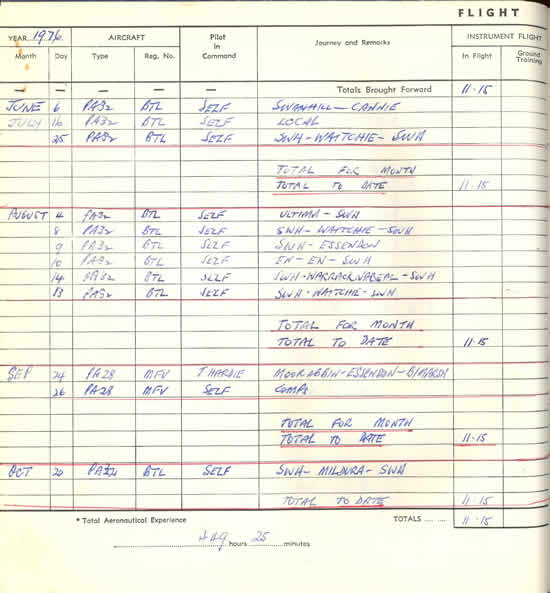 FLIGHT
YEAR 1976 AIRCRAFT Pilot in Command Journey and Remarks INSTRUMENT FLIGHT
Month Day Type Reg. No. In Flight Ground Training
— — — — — Totals Brought Forward 11·15
JUNE 6 PA32 BTL SELF SWANHILL - CANNIE
JULY 16 PA32 BTL SELF LOCAL
25 PA32 BTL SELF SWH - WAITCHIE - SWH
TOTAL FOR MONTH
TOTAL TO DATE 11-15
AUGUST 4 PA32 BTL SELF ULTIMA - SWH
8 PA32 BTL SELF SWH - WAITCHIE - SWH
9 PA32 BTL SELF SWH - ESSENDON
10 PA32 BTL SELF EN - EN - SWH
14 PA32 BTL SELF SWH - WARRACKNABEAL - SWH
13 PA32 BTL SELF SWH - WAITCHIE - SWH
TOTAL FOR MONTH
TOTAL TO DATE 11-15
SEP 24 PA28 MFV T HARDIE MOORABBIN - ESSENDON -
26 PA28 MFV SELF
TOTAL FOR MONTH
TOTAL TO DATE 11-15
OCT 20 BTL SELF SWH - MILDURA - SWH
TOTAL TO DATE 11-15
* Total Aeronautical Experience TOTALS .... .... 11-15
449 hours 25 minutes